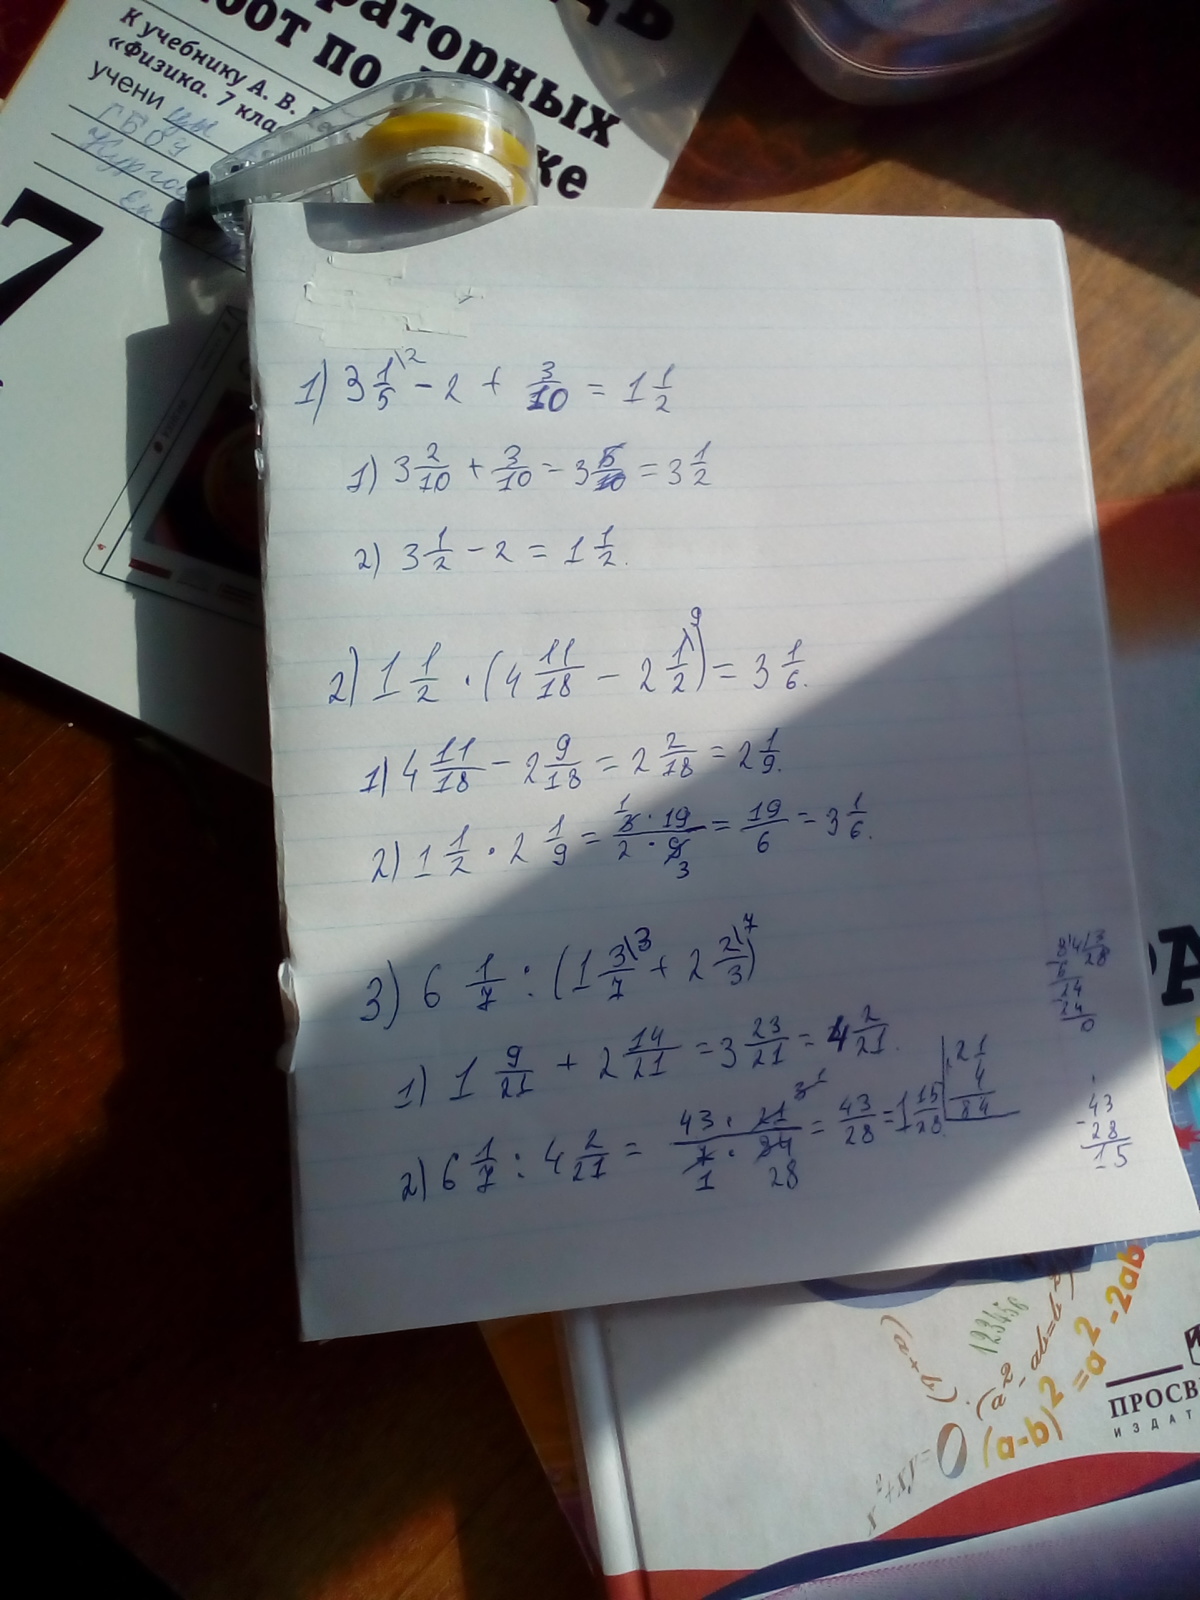 аторных
бот по
ке
К учебнику А. В.
«Физика. 7 кла
учени цы
ГБОУ
7
1) 3 1/5 \2 - 2 + 3/10 = 1 1/2
1) 3 2/10 + 3/10 = 3 5/10 = 3 1/2
2) 3 1/2 - 2 = 1 1/2.
2) 1 1/2 · (4 11/18 - 2 1/2 \9) = 3 1/6.
1) 4 11/18 - 2 9/18 = 2 2/18 = 2 1/9.
2) 1 1/2 · 2 1/9 = 3 · 19 / 2 · 9 1 3 = 19/6 = 3 1/6.
3) 6 1/7 : (1 3/7 \3 + 2 2/3 \7)
1) 1 9/21 + 2 14/21 = 3 23/21 = 4 2/21.
2) 6 1/7 : 4 2/21 = 43 · 21 / 7 · 84 1 28 = 43/28 = 1 15/28.
21
4
84
24
24
0
43
- 28
15
(a+b)
123456
(a-b)² = a² - 2ab
x²+xy=
0
ПРОСВ
ИЗДАТ